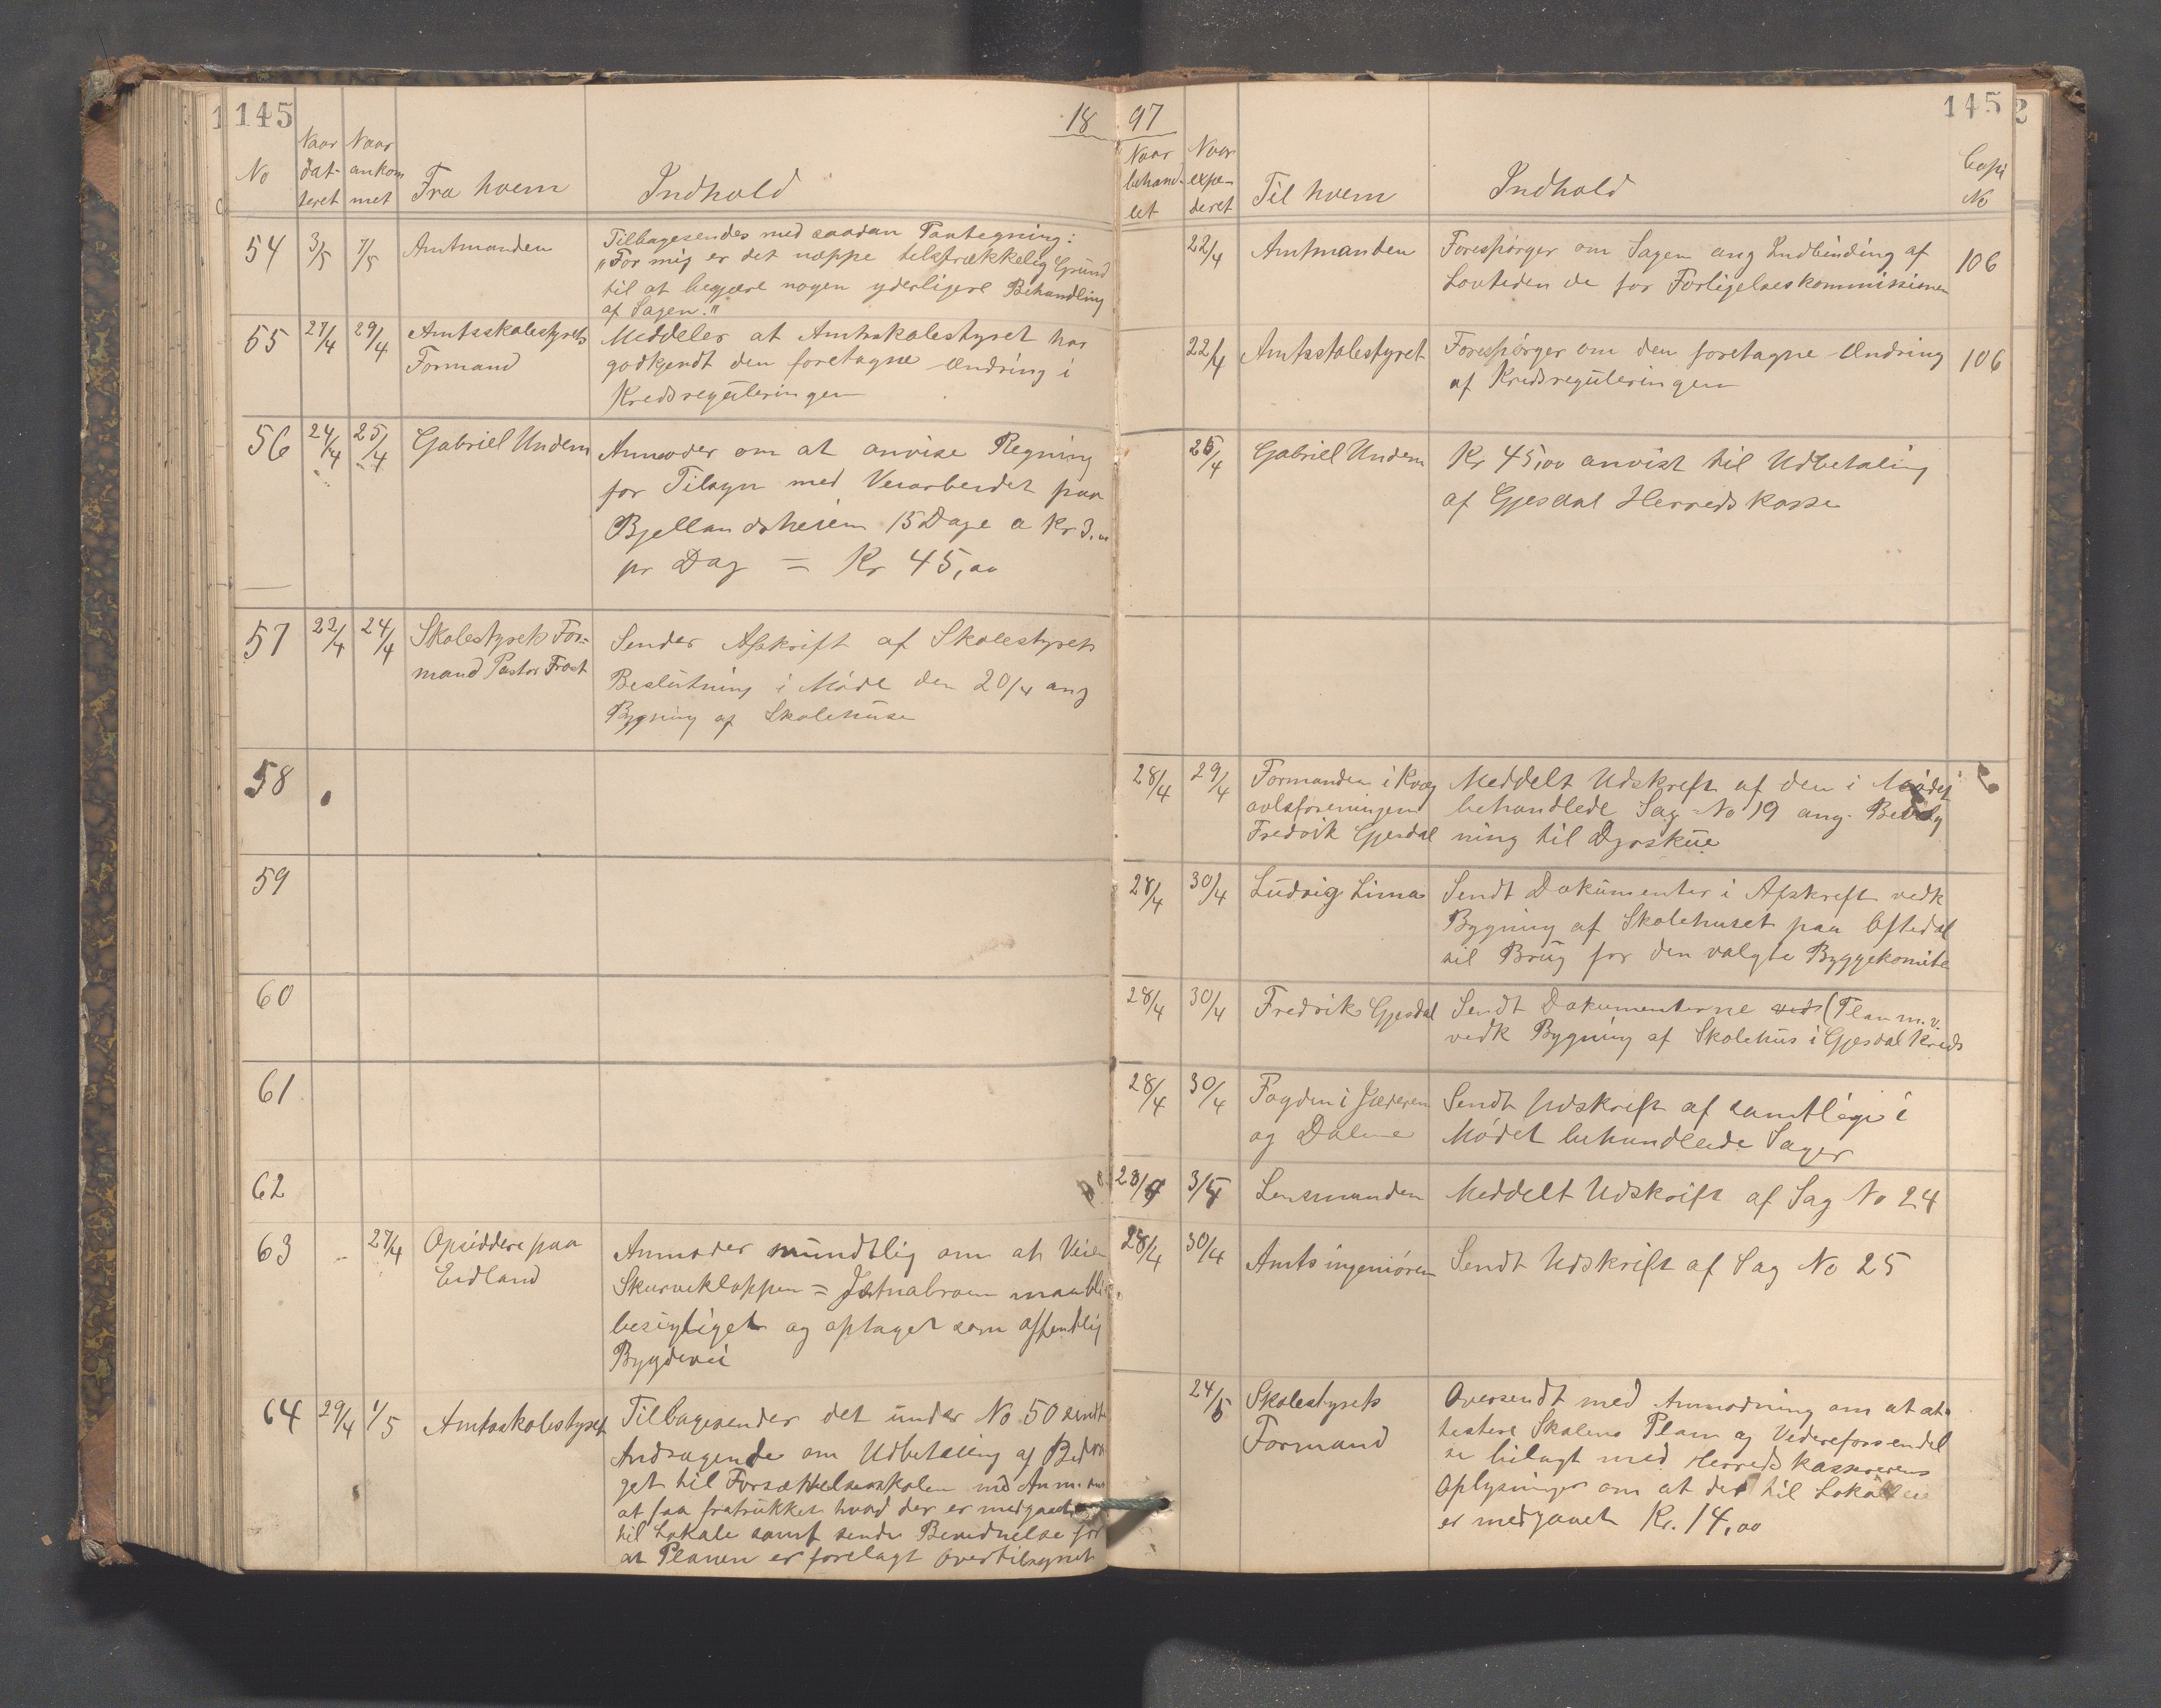 145
18
No
Naar dat-teret
Naar ankommet
Fra hvem
Indhold
54 3/5 7/5 Amtmanden
Tilbagesendes med saadan Paategning:
"For mig er det næppe tilstrækkelig Grund
til at begjære nogen yderligere Behandling
af Sagen."
55 27/4 29/4 Amtsskolestyrets
Formand
Meddeler at Amtsskolestyret har
godkjendt den foretagne Ændring i
Kredsreguleringen
56 24/4 25/4 Gabriel Undem
Anmoder om at anvise Regning
for Tilsyn med Veiarbeidet paa
Bjellandsheiem 15 Dage a Kr 3.00
pr Dag = Kr 45,00
57 22/4 24/4 Skolestyrets For=
mand Pastor Frost
Sender Afskrift af Skolestyrets
Beslutning i Møde den 20/4 ang
Bygning af Skolehuse
58
59
60
61
62
63 27/4 Opsiddere paa
Eidland
Anmoder mundtlig om at Veien
Skurvekloppen = maa bli
besigtiget og optaget som offentlig
Bygdevei
64 29/4 1/5 Amtsskolestyret
Tilbagesender det under No 50 sendte
Andragende om Udbetaling af Bidra
get til Forsættelsesskolen med Anm. om
at faa fratrukket hvad der er medgaaet
til Lokale samt sende Bevidnelse for
at Planen er forelagt Overtilsynet
97
145
2
Naar behand-let
Naar expe-deret
Til hvem
Indhold
Copi No
22/4 Amtmanden
Forespørger om Sagen ang Indbinding af
Lovtidende for Forligelseskommissionen
106
22/4 Amtsskolestyret
Forespørger om den foretagne Ændring
af Kredsreguleringen
106
25/4 Gabriel Undem
Kr 45,00 anvist til Udbetaling
af Gjesdal Herredskasse
28/4 29/4 Formanden i Kvæg
avlsforeningen
Fredrik Gjesdal
Meddelt Udskrift af den i Mødet
behandlede Sag No 19 ang. Bevilg
ning til Dyrskue
28/4 30/4 Ludvig Lima
Sendt Dokumenter i Afskrift vedk
Bygning af Skolehuset paa Oftedal
til Brug for den valgte Byggekomite
28/4 30/4 Fredrik Gjesdal
Sendt Dokumenterne vedk (Plan m.v.
vedk Bygning af Skolehus i Gjesdal Kreds
28/4 30/4 Fogden i Jæderen
og Dalene
Sendt Udskrift af samtlige i
Mødet behandlede Sager
28/4 3/5 Lensmanden
Meddelt Udskrift af Sag No 24
28/4 30/4 Amtsingeniøren
Sendt Udskrift af Sag No 25
24/5 Skolestyrets
Formand
Oversendt med Anmodning om at at-
testere Skolens Plan og Videreforsendel
se bilagt med Herredskassererens
Oplysninger om at der til Lokale
er medgaaet Kr. 14,00